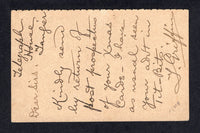 Telegraph
House
Tangier
Dear Sirs
Kindly send
by return of
Post prospectus
of your Xmas
Cards. I have
as usual seen
your advt in
Tit Bits
Griffin